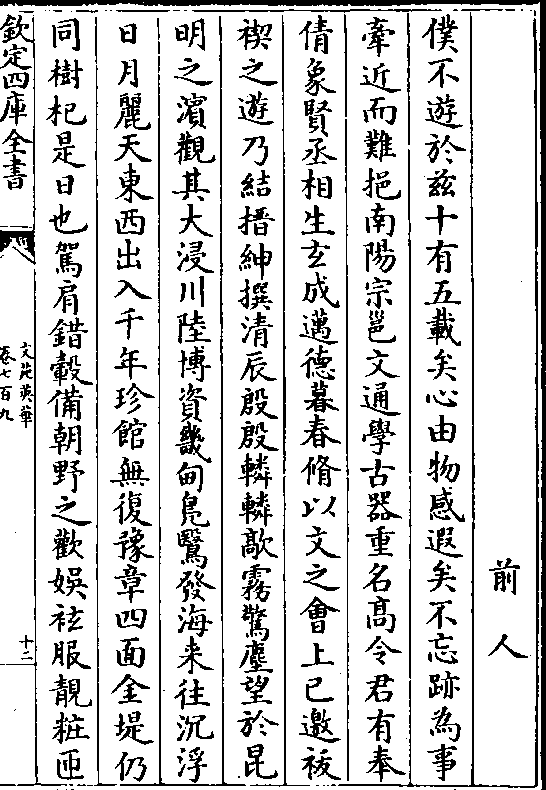 前人
僕不遊於兹十有五載矣心由物感遐矣不忘跡為事
牽近而難挹南陽宗邕文通學古器重名髙令君有奉
倩象賢丞相生玄成邁德暮春脩以文之會上巳邀祓
禊之遊乃結搢紳撰清辰殷殷轔轔歊霧驚塵望於昆
明之濱觀其大浸川陸博資畿甸鳬鷖發海来往沉浮
日月麗天東西出入千年珍館無復豫章四面金堤仍
同樹杞是日也駕肩錯轂備朝野之歡娯袨服靚粧匝
欽定四庫全書
文苑英華
卷七百九
十二